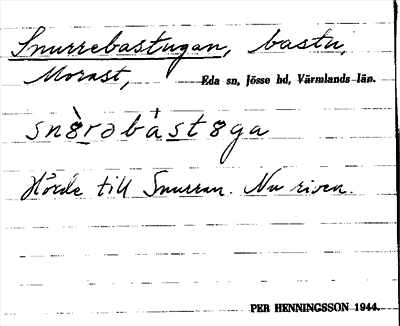 Snurrebastugan, bastu,
Morast, Eda sn, Jösse hd, Värmlands län.
snȣ̀rəbàstȣga
Hörde till Snurran. Nu riven.
PER HENNINGSSON 1944.